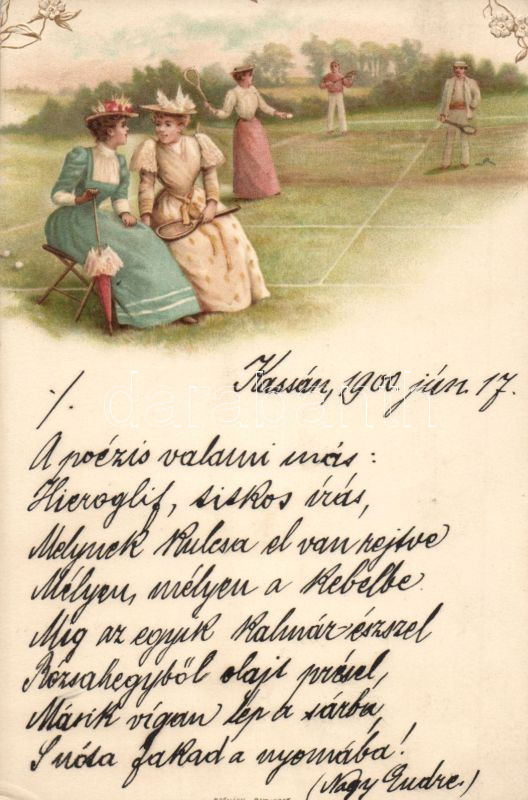 Kassán, 1900. jún. 17.
·/.
A poézis valami más:
Hieroglif, titkos írás,
Melynek kulcsa el van rejtve
Mélyen, mélyen a kebelbe.
Míg az egyik kalmár-észszel
Rózsahegyből olajt présel,
Másik vígan lép a sárba,
S nóta fakad a nyomába!
(Nagy Endre.)
darabanth